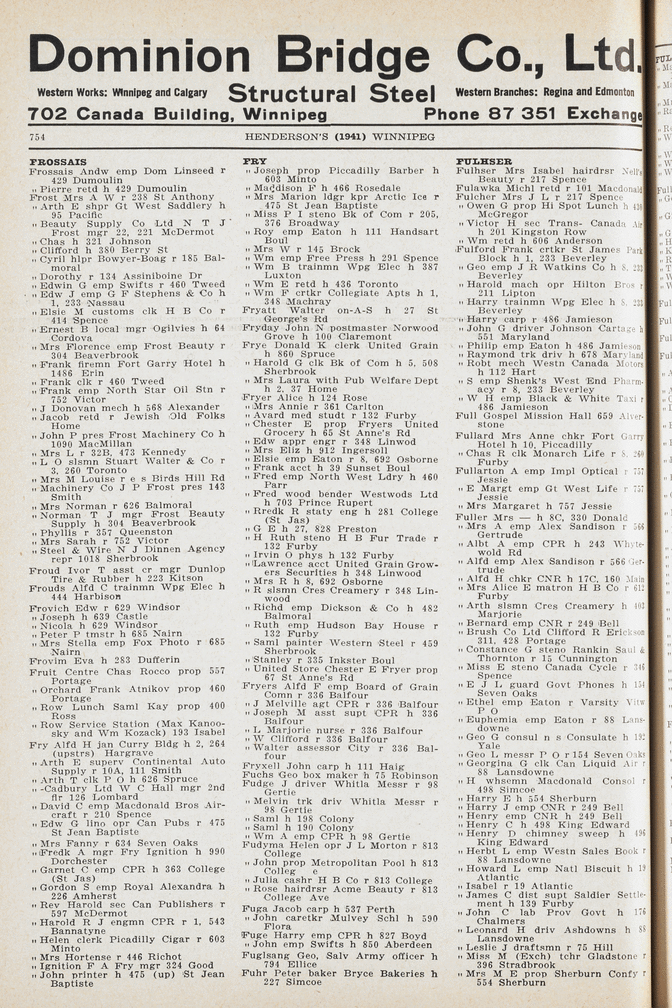 Dominion Bridge Co., Ltd.
Western Works: Winnipeg and Calgary Structural Steel Western Branches: Regina and Edmonton
702 Canada Building, Winnipeg Phone 87 351 Exchange
754 HENDERSON'S (1941) WINNIPEG
FROSSAIS
Frossais Andw emp Dom Linseed r
429 Dumoulin
„ Pierre retd h 429 Dumoulin
Frost Mrs A W r 238 St Anthony
„ Arth E shpr Gt West Saddlery h
95 Pacific
„ Beauty Supply Co Ltd N T J
Frost mgr 22, 221 McDermot
„ Chas h 321 Johnson
„ Clifford h 380 Berry St
„ Cyril hlpr Bowyer-Boag r 185 Bal-
moral
„ Dorothy r 134 Assiniboine Dr
„ Edwin G emp Swifts r 460 Tweed
„ Edw J emp G F Stephens & Co h
1, 233 Nassau
„ Elsie M customs clk H B Co r
414 Spence
„ Ernest B local mgr Ogilvies h 64
Cordova
„ Mrs Florence emp Frost Beauty r
304 Beaverbrook
„ Frank firemn Fort Garry Hotel h
1486 Erin
„ Frank clk r 460 Tweed
„ Frank emp North Star Oil Stn r
752 Victor
„ J Donovan mech h 568 Alexander
„ Jacob retd r Jewish Old Folks
Home
„ John P pres Frost Machinery Co h
1090 MacMillan
„ Mrs L r 32B, 473 Kennedy
„ L O slsmn Stuart Walter & Co r
3, 260 Toronto
„ Mrs M Louise r e s Birds Hill Rd
„ Machinery Co J P Frost pres 143
Smith
„ Mrs Norman r 626 Balmoral
„ Norman T J mgr Frost Beauty
Supply h 304 Beaverbrook
„ Phyllis r 357 Queenston
„ Mrs Sarah r 752 Victor
„ Steel & Wire N J Dinnen Agency
repr 1018 Sherbrook
Froud Ivor T asst cr mgr Dunlop
Tire & Rubber h 223 Kitson
Frouds Alfd C trainmn Wpg Elec h
444 Harbison
Frovich Edw r 629 Windsor
„ Joseph h 639 Castle
„ Nicola h 629 Windsor
„ Peter P tmstr h 685 Nairn
„ Mrs Stella emp Fox Photo r 685
Nairn
Frovim Eva h 283 Dufferin
Fruit Centre Chas Rocco prop 557
Portage
„ Orchard Frank Atnikov prop 460
Portage
„ Row Lunch Saml Kay prop 400
Ross
„ Row Service Station (Max Kanoo-
sky and Wm Kozack) 193 Isabel
Fry Alfd H jan Curry Bldg h 2, 264
(upstrs) Hargrave
„ Arth E superv Continental Auto
Supply r 10A, 111 Smith
„ Arth T clk P O h 626 Spruce
„ -Cadbury Ltd W C Hall mgr 2nd
flr 126 Lombard
„ David C emp Macdonald Bros Air-
craft r 210 Spence
„ Edw G lino opr Can Pubs r 475
St Jean Baptiste
„ Mrs Fanny r 634 Seven Oaks
„ Fredk A mgr Fry Ignition h 990
Dorchester
„ Garnet C emp CPR h 363 College
(St Jas)
„ Gordon S emp Royal Alexandra h
226 Amherst
„ Rev Harold sec Can Publishers r
597 McDermot
„ Harold R J engmn CPR r 1, 543
Bannatyne
„ Helen clerk Picadilly Cigar r 603
Minto
„ Mrs Hortense r 446 Richot
„ Ignition F A Fry mgr 324 Good
„ John printer h 475 (up) St Jean
Baptiste
FRY
„ Joseph prop Piccadilly Barber h
603 Minto
„ Maddison F h 466 Rosedale
„ Mrs Marion ldgr kpr Arctic Ice r
475 St Jean Baptiste
„ Miss P I steno Bk of Com r 205,
376 Broadway
„ Roy emp Eaton h 111 Handsart
Boul
„ Mrs W r 145 Brock
„ Wm emp Free Press h 291 Spence
„ Wm B trainmn Wpg Elec h 387
Luxton
„ Wm E retd h 436 Toronto
„ Wm F crtkr Collegiate Apts h 1,
348 Machray
Fryatt Walter on-A-S h 27 St
George's Rd
Fryday John N postmaster Norwood
Grove h 100 Claremont
Frye Donald K clerk United Grain
h 860 Spruce
„ Harold G clk Bk of Com h 5, 508
Sherbrook
„ Mrs Laura with Pub Welfare Dept
h 2, 37 Home
Fryer Alice h 124 Rose
„ Mrs Annie r 361 Carlton
„ Avard med studt r 132 Furby
„ Chester E prop Fryers United
Grocery h 65 St Anne's Rd
„ Edw appr engr r 348 Linwod
„ Mrs Eliz h 912 Ingersoll
„ Elsie emp Eaton r 8, 692 Osborne
„ Frank acct h 39 Sunset Boul
„ Fred emp North West Ldry h 460
Parr
„ Fred wood bender Westwods Ltd
h 703 Prince Rupert
„ Rredk R staty eng h 281 College
(St Jas)
„ G E h 27, 828 Preston
„ H Ruth steno H B Fur Trade r
132 Furby
„ Irvin O phys h 132 Furby
„ Lawrence acct United Grain Grow-
ers Securities h 348 Linwood
„ Mrs R h 8, 692 Osborne
„ R slsmn Cres Creamery r 348 Lin-
wood
„ Richd emp Dickson & Co h 482
Balmoral
„ Ruth emp Hudson Bay House r
132 Furby
„ Saml painter Western Steel r 459
Sherbrook
„ Stanley r 335 Inkster Boul
„ United Store Chester E Fryer prop
67 St Anne's Rd
Fryers Alfd F emp Board of Grain
Comn r 336 Balfour
„ J Melville agt CPR r 336 Balfour
„ Joseph M asst supt CPR h 336
Balfour
„ L Marjorie nurse r 336 Balfour
„ W Clifford r 336 Balfour
„ Walter assessor City r 336 Bal-
four
Fryxell John carp h 111 Haig
Fuchs Geo box maker h 75 Robinson
Fudge J driver Whitla Messr r 98
Gertie
„ Melvin trk driv Whitla Messr r
98 Gertie
„ Saml h 198 Colony
„ Saml h 190 Colony
„ Wm A emp CPR h 98 Gertie
Fudyma Helen opr J L Morton r 813
College
„ John prop Metropolitan Pool h 813
Colleg e
„ Julia cashr H B Co r 813 College
„ Rose hairdrsr Acme Beauty r 813
College Ave
Fuga Jacob carp h 537 Perth
„ John caretkr Mulvey Schl h 590
Flora
Fuge Harry emp CPR h 827 Boyd
„ John emp Swifts h 850 Aberdeen
Fuglsang Geo, Salv Army officer h
794 Ellice
Fuhr Peter baker Bryce Bakeries h
227 Simcoe
FULHSER
Fulhser Mrs Isabel hairdrsr Nell's
Beauty r 217 Spence
Fulawka Michl retd r 101 Macdonald
Fulcher Mrs J L r 217 Spence
„ Owen G prop Hi Spot Lunch h 436
McGregor
„ Victor H sec Trans- Canada Air
h 201 Kingston Row
„ Wm retd h 606 Anderson
Fulford Frank crtkr St James Park
Block h 1, 233 Beverley
„ Geo emp J R Watkins Co h 8, 233
Beverley
„ Harold mach opr Hilton Bros r
211 Lipton
„ Harry trainmn Wpg Elec h 8, 233
Beverley
„ Harry carp r 486 Jamieson
„ John G driver Johnson Cartage h
551 Maryland
„ Philip emp Eaton h 486 Jamieson
„ Raymond trk driv h 678 Maryland
„ Robt mech Westn Canada Motors
h 112 Hart
„ S emp Shenk's West End Pharm-
acy r 8, 233 Beverley
„ W H emp Black & White Taxi r
486 Jamieson
Full Gospel Mission Hall 659 Alver-
stone
Fullard Mrs Anne chkr Fort Garry
Hotel h 10, Piccadilly
„ Chas R clk Monarch Life r 8, 260
Furby
Fullarton A emp Impl Optical r 757
Jessie
„ E Margt emp Gt West Life r 757
Jessie
„ Mrs Margaret h 757 Jessie
Fuller Mrs — h 8C, 330 Donald
„ Mrs A emp Alex Sandison r 566
Gertrude
„ Albt A emp CPR h 243 Whyte-
wold Rd
„ Alfd emp Alex Sandison r 566 Ger-
trude
„ Alfd H chkr CNR h 17C, 160 Main
„ Mrs Alice E matron H B Co r 612
Furby
„ Arth slsmn Cres Creamery h 403
Marjorie
„ Bernard emp CNR r 249 Bell
„ Brush Co Ltd Clifford R Erickson
311, 428 Portage
„ Constance G steno Rankin Saul &
Thornton r 15 Cunnington
„ Miss E steno Canada Cycle r 346
Spence
„ E J L guard Govt Phones h 154
Seven Oaks
„ Ethel emp Eaton r Varsity View
P O
„ Euphemia emp Eaton r 88 Lans-
downe
„ Geo G consul n s Consulate h 192
Yale
„ Geo L messr P O r 154 Seven Oaks
„ Georgina G clk Can Liquid Air r
88 Lansdowne
„ H whsemn Macdonald Consol r
498 Simcoe
„ Harry E h 554 Sherburn
„ Harry J emp CNR r 249 Bell
„ Henry emp CNR h 249 Bell
„ Henry C h 498 King Edward
„ Henry D chimney sweep h 496
King Edward
„ Herbt L emp Westn Sales Book r
88 Lansdowne
„ Howard L emp Natl Biscuit h 19
Atlantic
„ Isabel r 19 Atlantic
„ James C dist supt Saldier Settle-
ment h 139 Furby
„ John C lab Prov Govt h 176
Chalmers
„ Leonard H driv Ashdowns h 88
Lansdowne
„ Leslie J draftsmn r 75 Hill
„ Miss M (Exch) tchr Gladstone r
396 Stradbrook
„ Mrs M E prop Sherburn Confy r
554 Sherburn